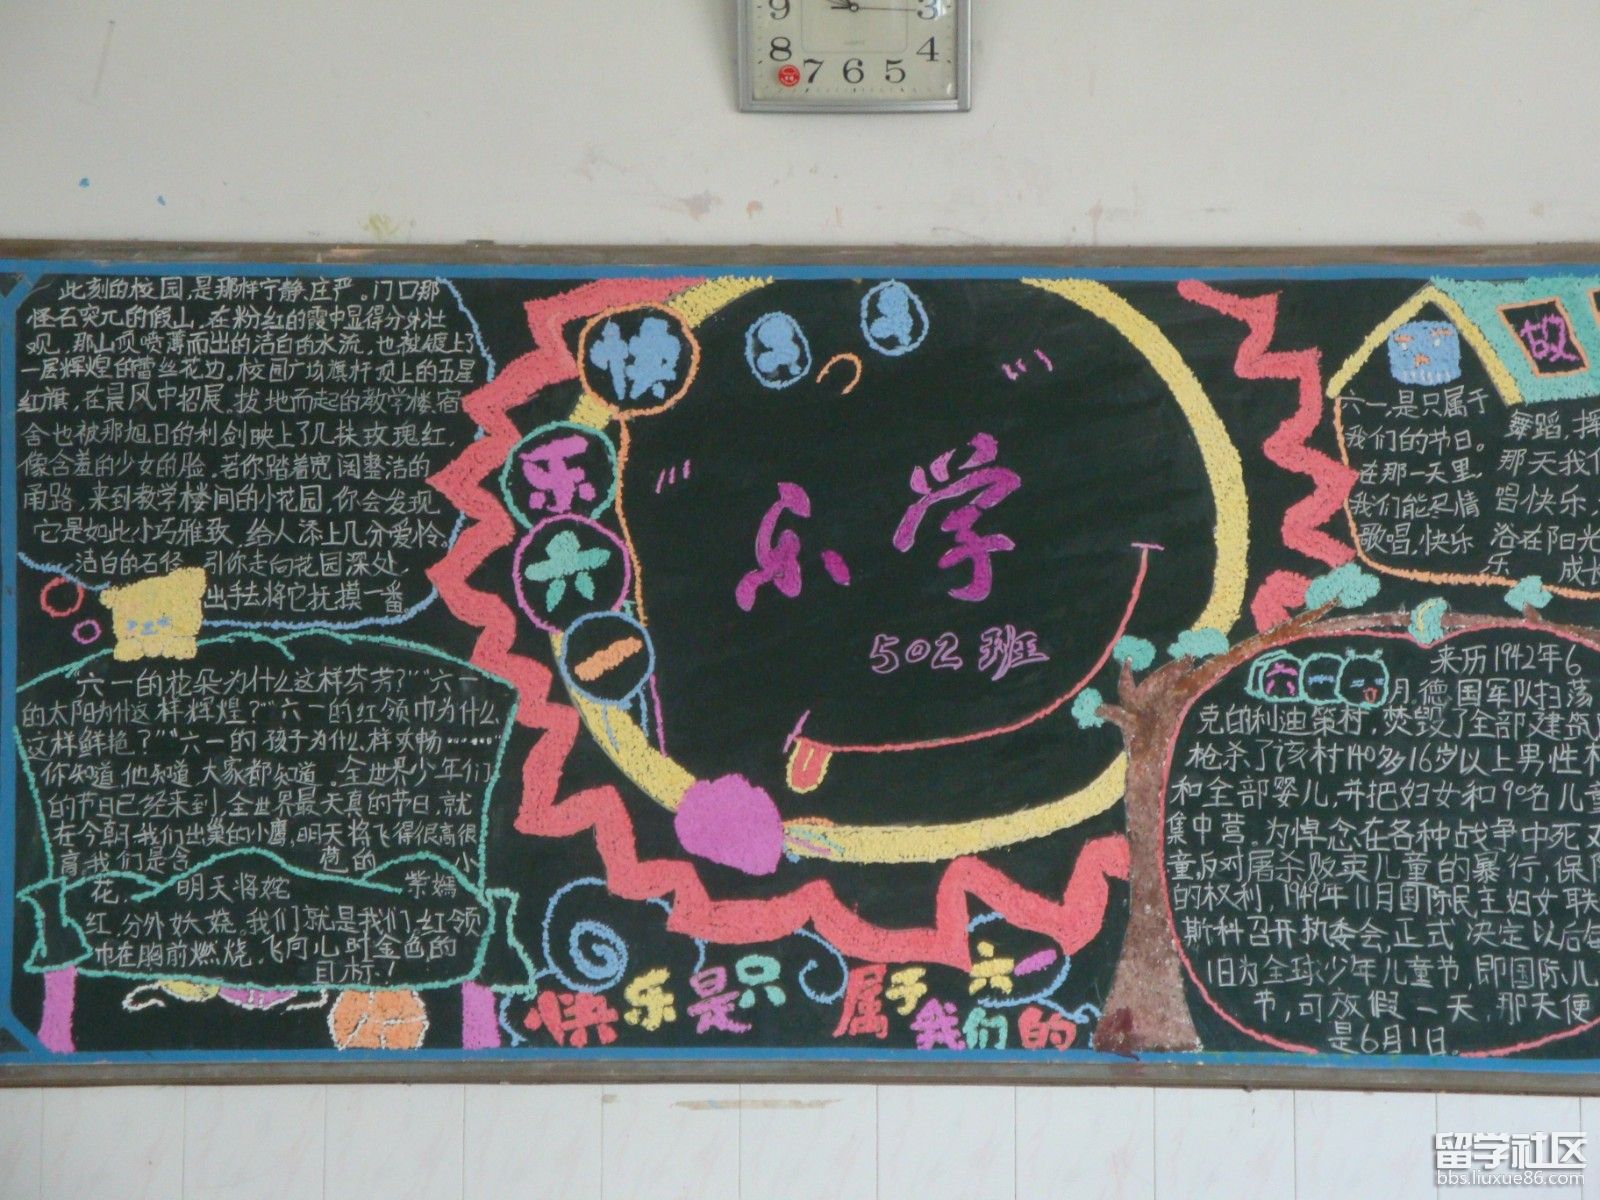 9
3
8
4
7 6 5
此刻的校园,是那样宁静、庄严。门口那
怪石突兀的假山,在粉红的霞中显得分外壮
观,那山顶喷薄而出的洁白的水流,也被镀上了
一层辉煌的蕾丝花边。校园广场旗杆顶上的五星
红旗,在晨风中招展。拔地而起的教学楼、宿
舍也被那旭日的利剑映上了几抹玫瑰红,
像含羞的少女的脸。若你踏着宽阔整洁的
甬路,来到教学楼间的小花园,你会发现
它是如此小巧雅致,给人添上几分爱怜。
洁白的石径,引你走向花园深处,
出手去将它抚摸一番。
"六一的花朵为什么这样芬芳?""六一
的太阳为什这样辉煌?""六一的红领巾为什么
这样鲜艳?""六一的孩子为什么样欢畅……"
你知道,他知道,大家都知道。全世界少年们
的节日已经来到,全世界最天真的节日,就
在今朝,我们出巢的小鹰,明天将飞得很高很
高,我们是含 苞的 小
花, 明天将姹 紫嫣
红,分外妖娆。我们就是我们,红领
巾在胸前燃烧,飞向儿时金色的
目标!
快
乐
六
一
乐学
502班
快乐是只属于我们的六一
故
六一,是只属于
我们的节日。
在那一天里,
我们能尽情
歌唱,快乐
舞蹈,挥
那天我们
唱快乐,
浴在阳光
乐 成长
六
来历 1942年6
月,德国军队扫荡
克的利迪策村,焚毁了全部建筑
枪杀了该村140多16岁以上男性
和全部婴儿,并把妇女和90名儿童
集中营。为悼念在各种战争中死
童,反对屠杀贩卖儿童的暴行,保
的权利,1949年11月国际民主妇女联
斯科召开执委会,正式决定以后每
1日为全球少年儿童节,即国际儿
节,可放假一天,那天便
是6月1日。
留学社区
bbs.liuxue86.com